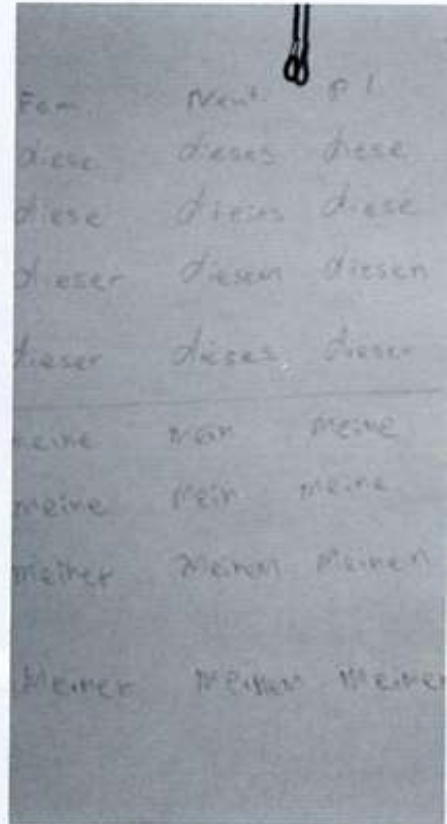 Fem. Neut. Pl.
diese dieses diese
diese dieses diese
dieser diesem diesen
dieser dieses dieser
meine mein meine
meine mein meine
meiner meinem meinen
Meiner meiner